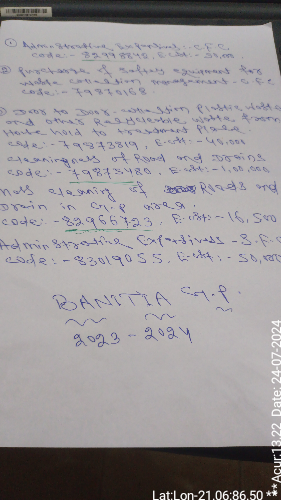 ① Administrative Expentives - C.F.C
code:- 82998842, E.cost:- 50,000.
② purchange of Safety equipment for
waste collection management - C.F.C
code:- 79870168.
③ Door to Door- collection plastic waste
and other Recycleable waste from
House hold to treatment place.
code:- 79873819, E.cost:- 40,000
cleaningness of Road and Drains
code:- 79875480, E.cost:- 1,00,000
Mass cleaning of Roads and
Drain in G.P area.
code:- 82966723, E.cost:- 16,500
Administrative Expentives - S.F.C
code:- 83019055, E.cost:- 50,000
BANITIA G.P.
2023 - 2024
Lat:Lon-21.06:86.50 **Acur:13.22 Date: 24-07-2024